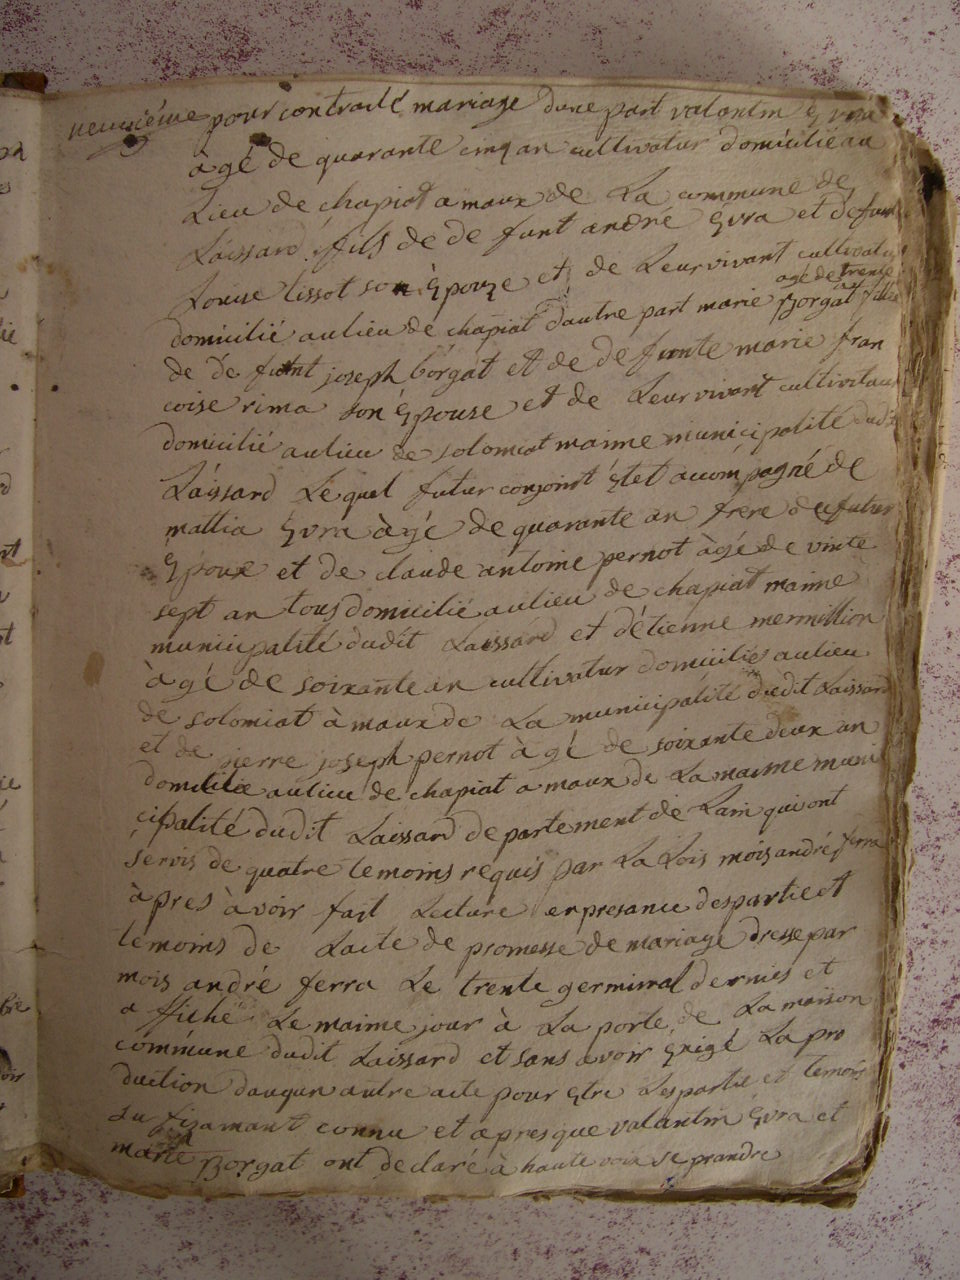 neuvième pour contracté mariage dune part valantin Evra
àgé de quarante cinq an cultivatur domicilié au
Lieu de chapiat a maux de La commune de
Laissard fils de de funt andré Evra et defunt
Louise tissot son Epouze et de Leur vivant cultivat
agé de trente
domicilié au lieu de chapiat dautre part marie Borgat fille
de de funt joseph borgat et de de funte marie fran
coise rima son Epouse et de Leur vivant cultivitaur
domicilié au lieu de solomiat maime municipalité dudit
Laissard Le quel futur conjoint Etet accompagné de
mattia Evra àgé de quarante an frere du futur
Epoux et de claude antoine pernot àgé de vinte
sept an tous domicilié au lieu de chapiat maime
municipalité dudit Laissard et détienne mermillion
àgé de soixante an cultivatur domicilié au lieu
de solomiat à maux de La municipalité dudit Laissard
et de pierre joseph pernot àgé de soixante deux an
domicilié au lieu de chapiat a maux de La maime muni
cipalité dudit Laissard departement de Lain qui ont
servis de quatre temoins requis par La Lois mois andré ferra
àpres àvoir fait Lecture en presance des partie et
temoins de Lacte de promesse de mariage dresse par
mois andré ferra Le trente germinal dernies et
a ffiché Le maime jour à La porte de La maison
commune dudit Laissard et sans avoir Exigé La pro
duction dauqun autre acte pour Etre Les partie et temoin
su fizamant connu et apres que valantin Evra et
marie Borgat ont declaré à haute voix se prandre